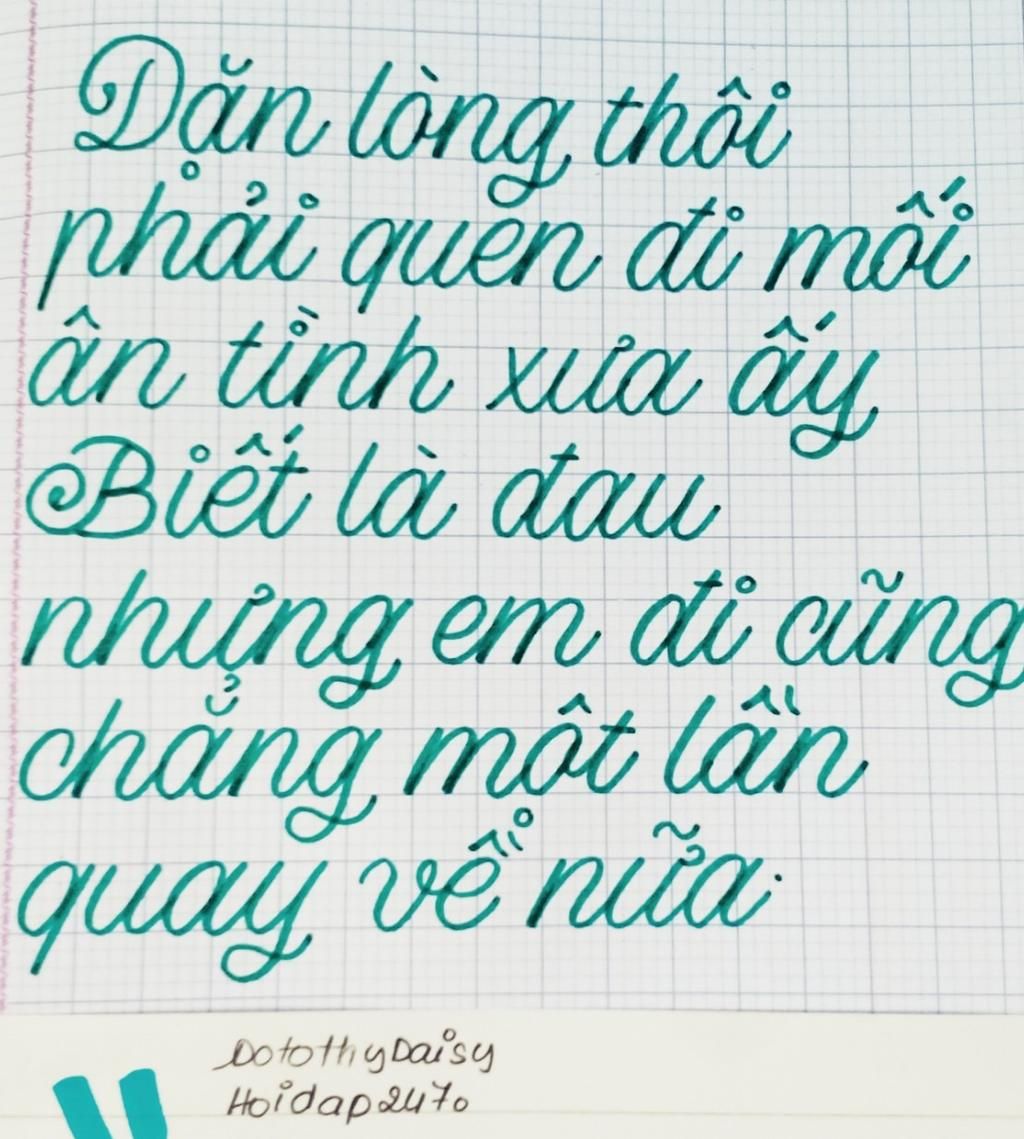 Dặn lòng thôi
phải quên đi mối
ân tình xưa ấy
Biết là đau
nhưng em đi cũng
chẳng một lần
quay về nữa.
DotothyDaisy
Hoidap247.